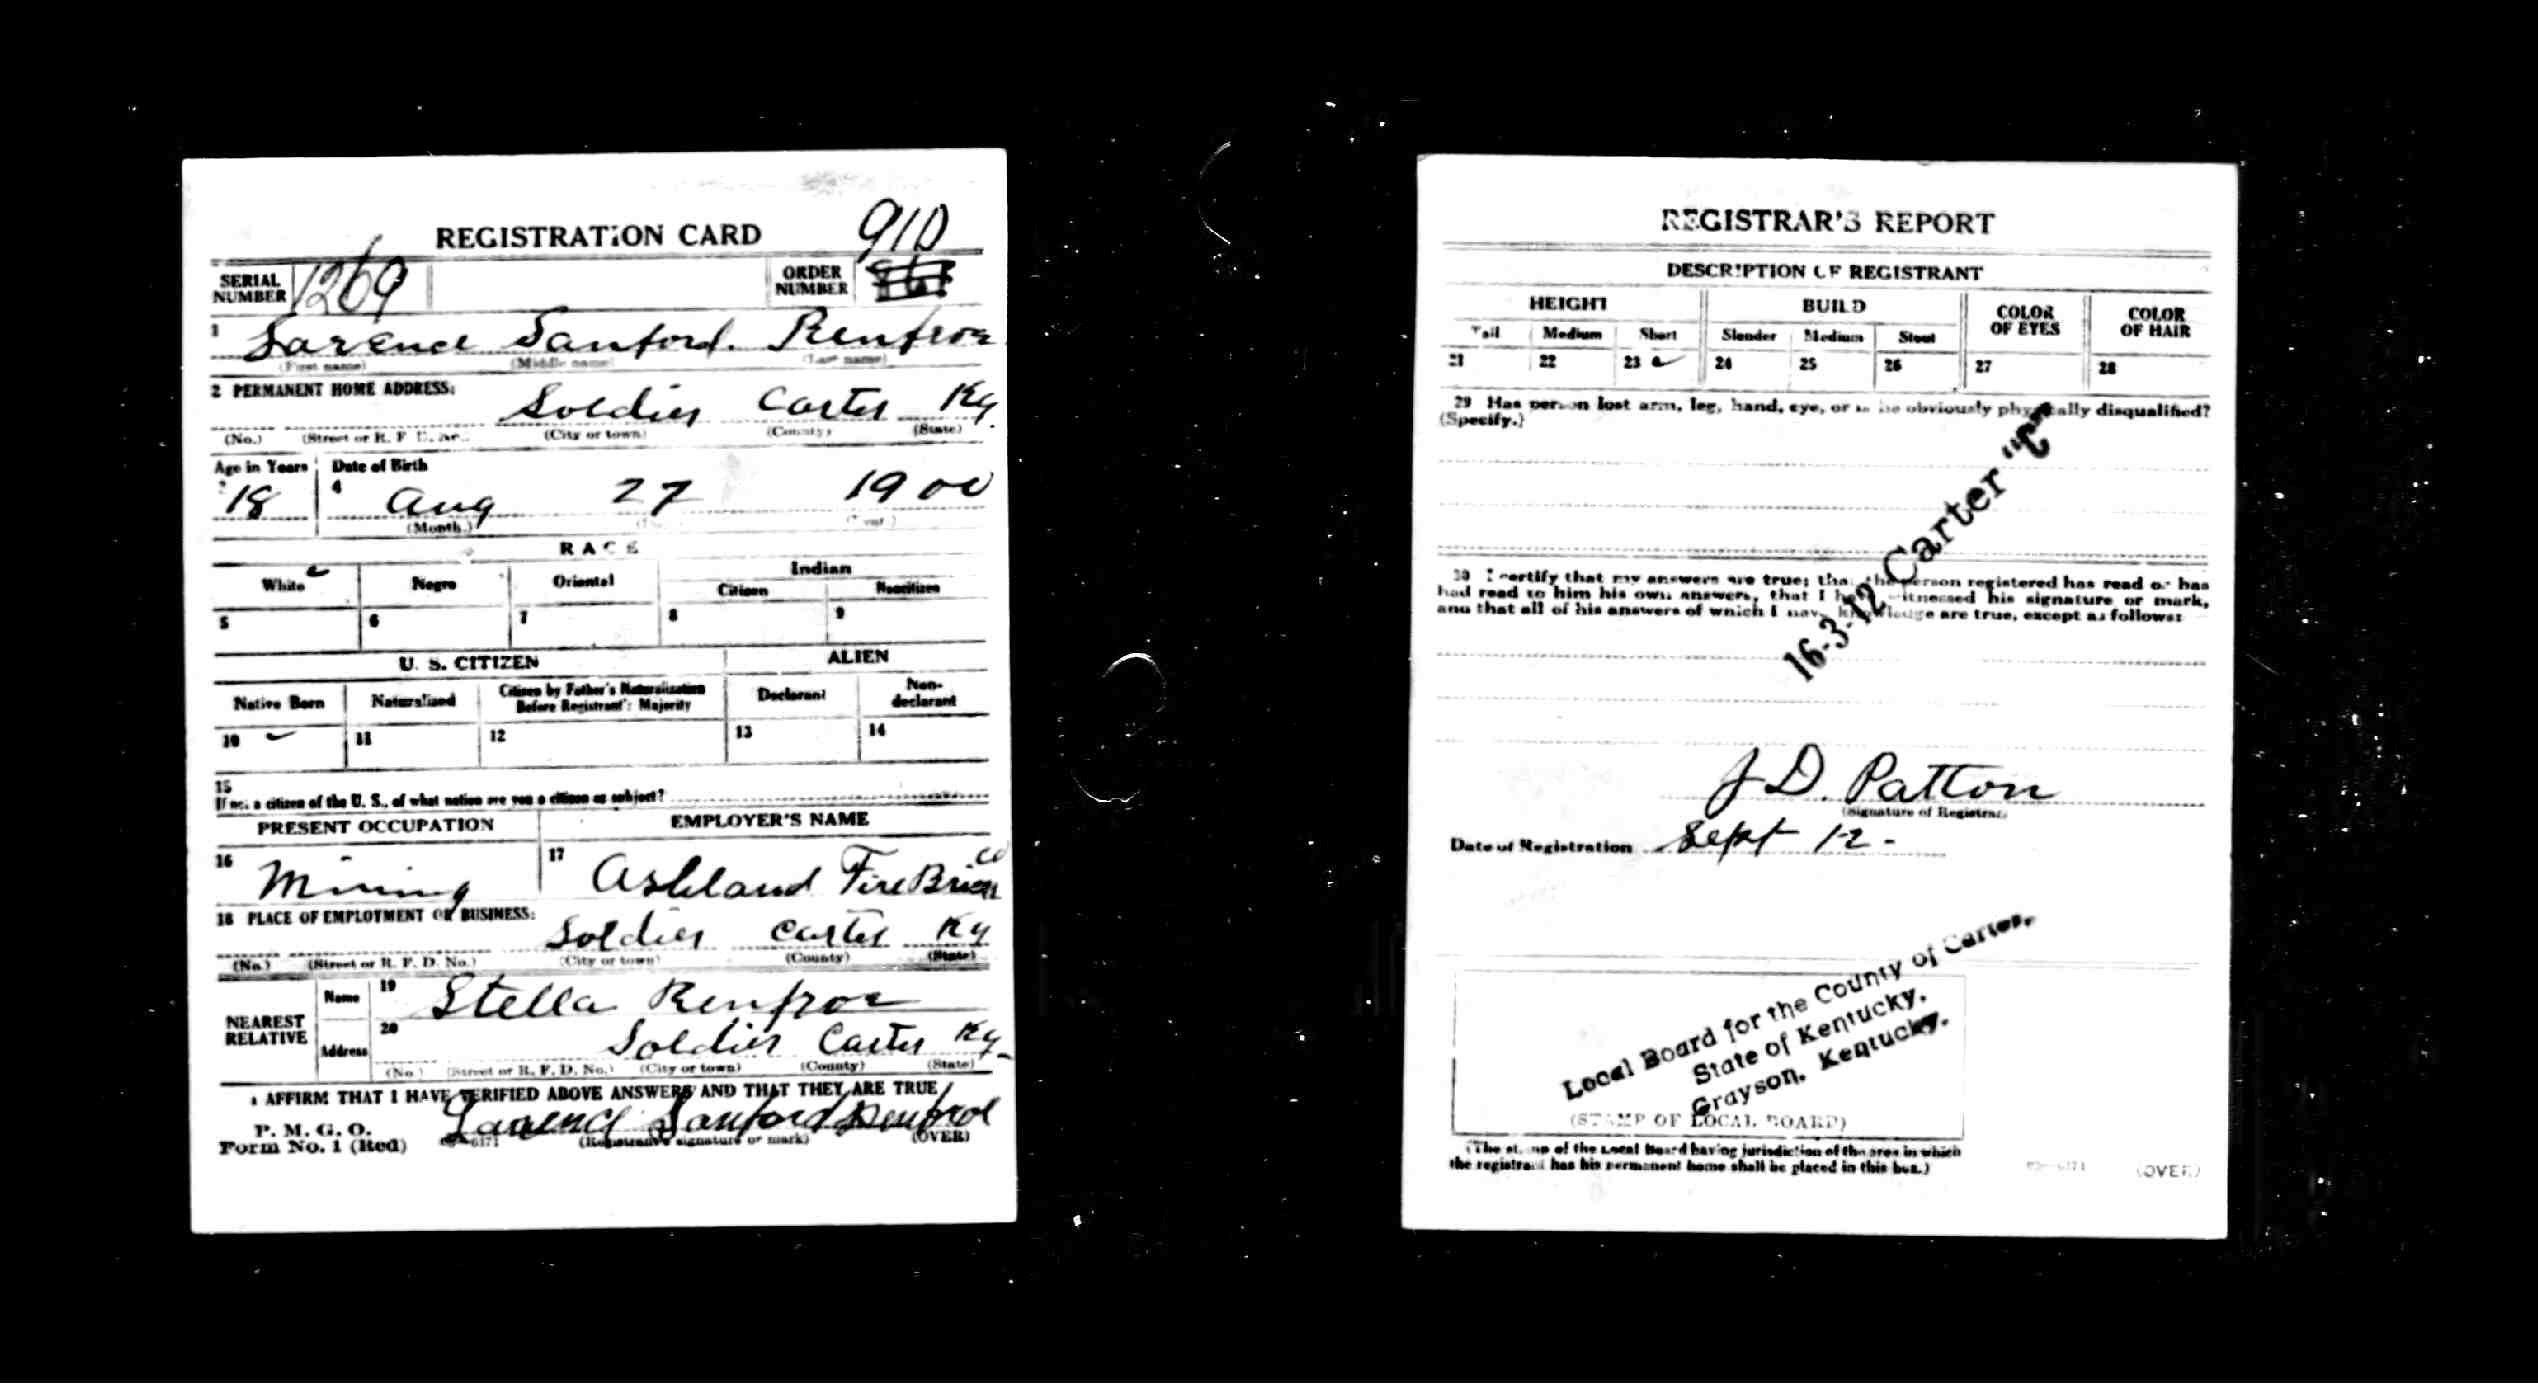 REGISTRATION CARD
910
SERIAL NUMBER 1269 ORDER NUMBER
1 Larence Sanford. Renfroe
(First name) (Middle name) (Last name)
2 PERMANENT HOME ADDRESS:
Soldier Carter Ky.
(No.) (Street or R. F. D. No.) (City or town) (County) (State)
Age in Years Date of Birth
18 4 Aug 27 1900
(Month.)
RACE
White Negro Oriental Indian
Citizen Noncitizen
5 6 7 8 9
U. S. CITIZEN ALIEN
Native Born Naturalized Citizen by Father's Naturalization Before Registrant's Majority Declarant Non-declarant
10 11 12 13 14
15
If not a citizen of the U. S., of what nation are you a citizen or subject?
PRESENT OCCUPATION EMPLOYER'S NAME
16 Mining 17 Ashland Fire Brick Co
18 PLACE OF EMPLOYMENT OR BUSINESS:
Soldier Carter Ky
(No.) (Street or R. F. D. No.) (City or town) (County) (State)
NEAREST RELATIVE
Name 19 Stella Renfroe
Address 20 Soldier Carter Ky.
(No.) (Street or R. F. D. No.) (City or town) (County) (State)
I AFFIRM THAT I HAVE VERIFIED ABOVE ANSWERS AND THAT THEY ARE TRUE
Larence Sanford Renfroe
P. M. G. O.
Form No. 1 (Red) (Registrant's signature or mark) (OVER)
REGISTRAR'S REPORT
DESCRIPTION OF REGISTRANT
HEIGHT BUILD COLOR OF EYES COLOR OF HAIR
Tall Medium Short Slender Medium Stout
21 22 23 24 25 26 27 28
29 Has person lost arm, leg, hand, eye, or is he obviously physically disqualified?
(Specify.)
16-3-12 Carter "C"
30 I certify that my answers are true; that the person registered has read or has
had read to him his own answers, that I have witnessed his signature or mark,
and that all of his answers of which I have knowledge are true, except as follows:
J D. Patton
(Signature of Registrar)
Date of Registration Sept 12-
Local Board for the County of Carter,
State of Kentucky.
Grayson, Kentucky.
(STAMP OF LOCAL BOARD)
(The stamp of the Local Board having jurisdiction of the area in which
the registrant has his permanent home shall be placed in this box.)
(OVER)